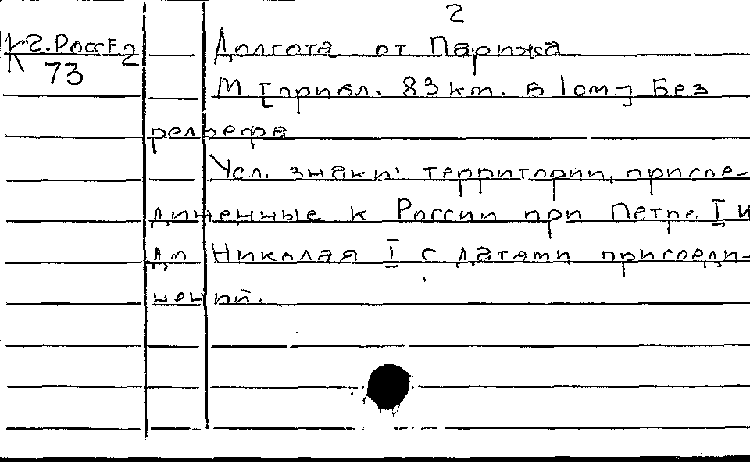 2
К 2.РоссЕ2 Долгота от Парижа
73
М [прибл. 83 км. в 1 см] Без
рельефа
Усл. знаки: территории, присое-
диненные к России при Петре I и
до Николая I с датами присоеди-
нений.